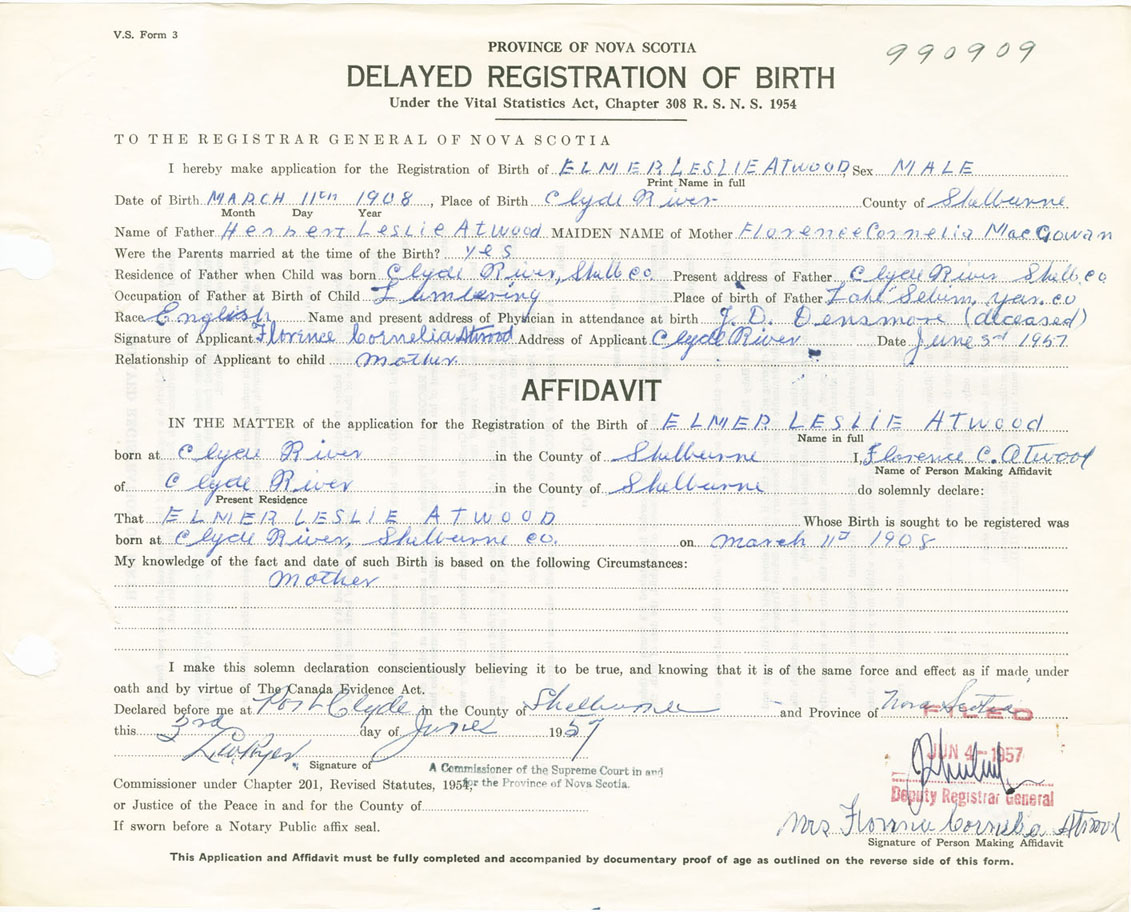 V.S. Form 3
990909
PROVINCE OF NOVA SCOTIA
DELAYED REGISTRATION OF BIRTH
Under the Vital Statistics Act, Chapter 308 R. S. N. S. 1954
TO THE REGISTRAR GENERAL OF NOVA SCOTIA
I hereby make application for the Registration of Birth of ELMER LESLIE ATWOOD, Sex MALE
Print Name in full
Date of Birth MARCH 11th 1908, Place of Birth Clyde River County of Shelburne
Month Day Year
Name of Father Herbert Leslie Atwood MAIDEN NAME of Mother Florence Cornelia MacGowan
Were the Parents married at the time of the Birth? yes
Residence of Father when Child was born Clyde River, Shelb co Present address of Father Clyde River Shelb co
Occupation of Father at Birth of Child Lumbering Place of birth of Father yar. co
Race English Name and present address of Physician in attendance at birth J. D. Densmore (deceased)
Signature of Applicant Florence Cornelia Atwood Address of Applicant Clyde River Date June 3rd 1957
Relationship of Applicant to child Mother
AFFIDAVIT
IN THE MATTER of the application for the Registration of the Birth of ELMER LESLIE ATWOOD
Name in full
born at Clyde River in the County of Shelburne I, Florence C. Atwood
Name of Person Making Affidavit
of Clyde River in the County of Shelburne do solemnly declare:
Present Residence
That ELMER LESLIE ATWOOD Whose Birth is sought to be registered was
born at Clyde River, Shelburne co. on march 11th 1908
My knowledge of the fact and date of such Birth is based on the following Circumstances:
Mother
I make this solemn declaration conscientiously believing it to be true, and knowing that it is of the same force and effect as if made under
oath and by virtue of The Canada Evidence Act.
Declared before me at Port Clyde in the County of Shelburne and Province of Nova Scotia
FILED
this 3rd day of June 1957
JUN 4 - 1957
Signature of
A Commissioner of the Supreme Court in and
for the Province of Nova Scotia.
Commissioner under Chapter 201, Revised Statutes, 1954,
Deputy Registrar General
or Justice of the Peace in and for the County of
If sworn before a Notary Public affix seal.
Mrs Florence Cornelia Atwood
Signature of Person Making Affidavit
This Application and Affidavit must be fully completed and accompanied by documentary proof of age as outlined on the reverse side of this form.